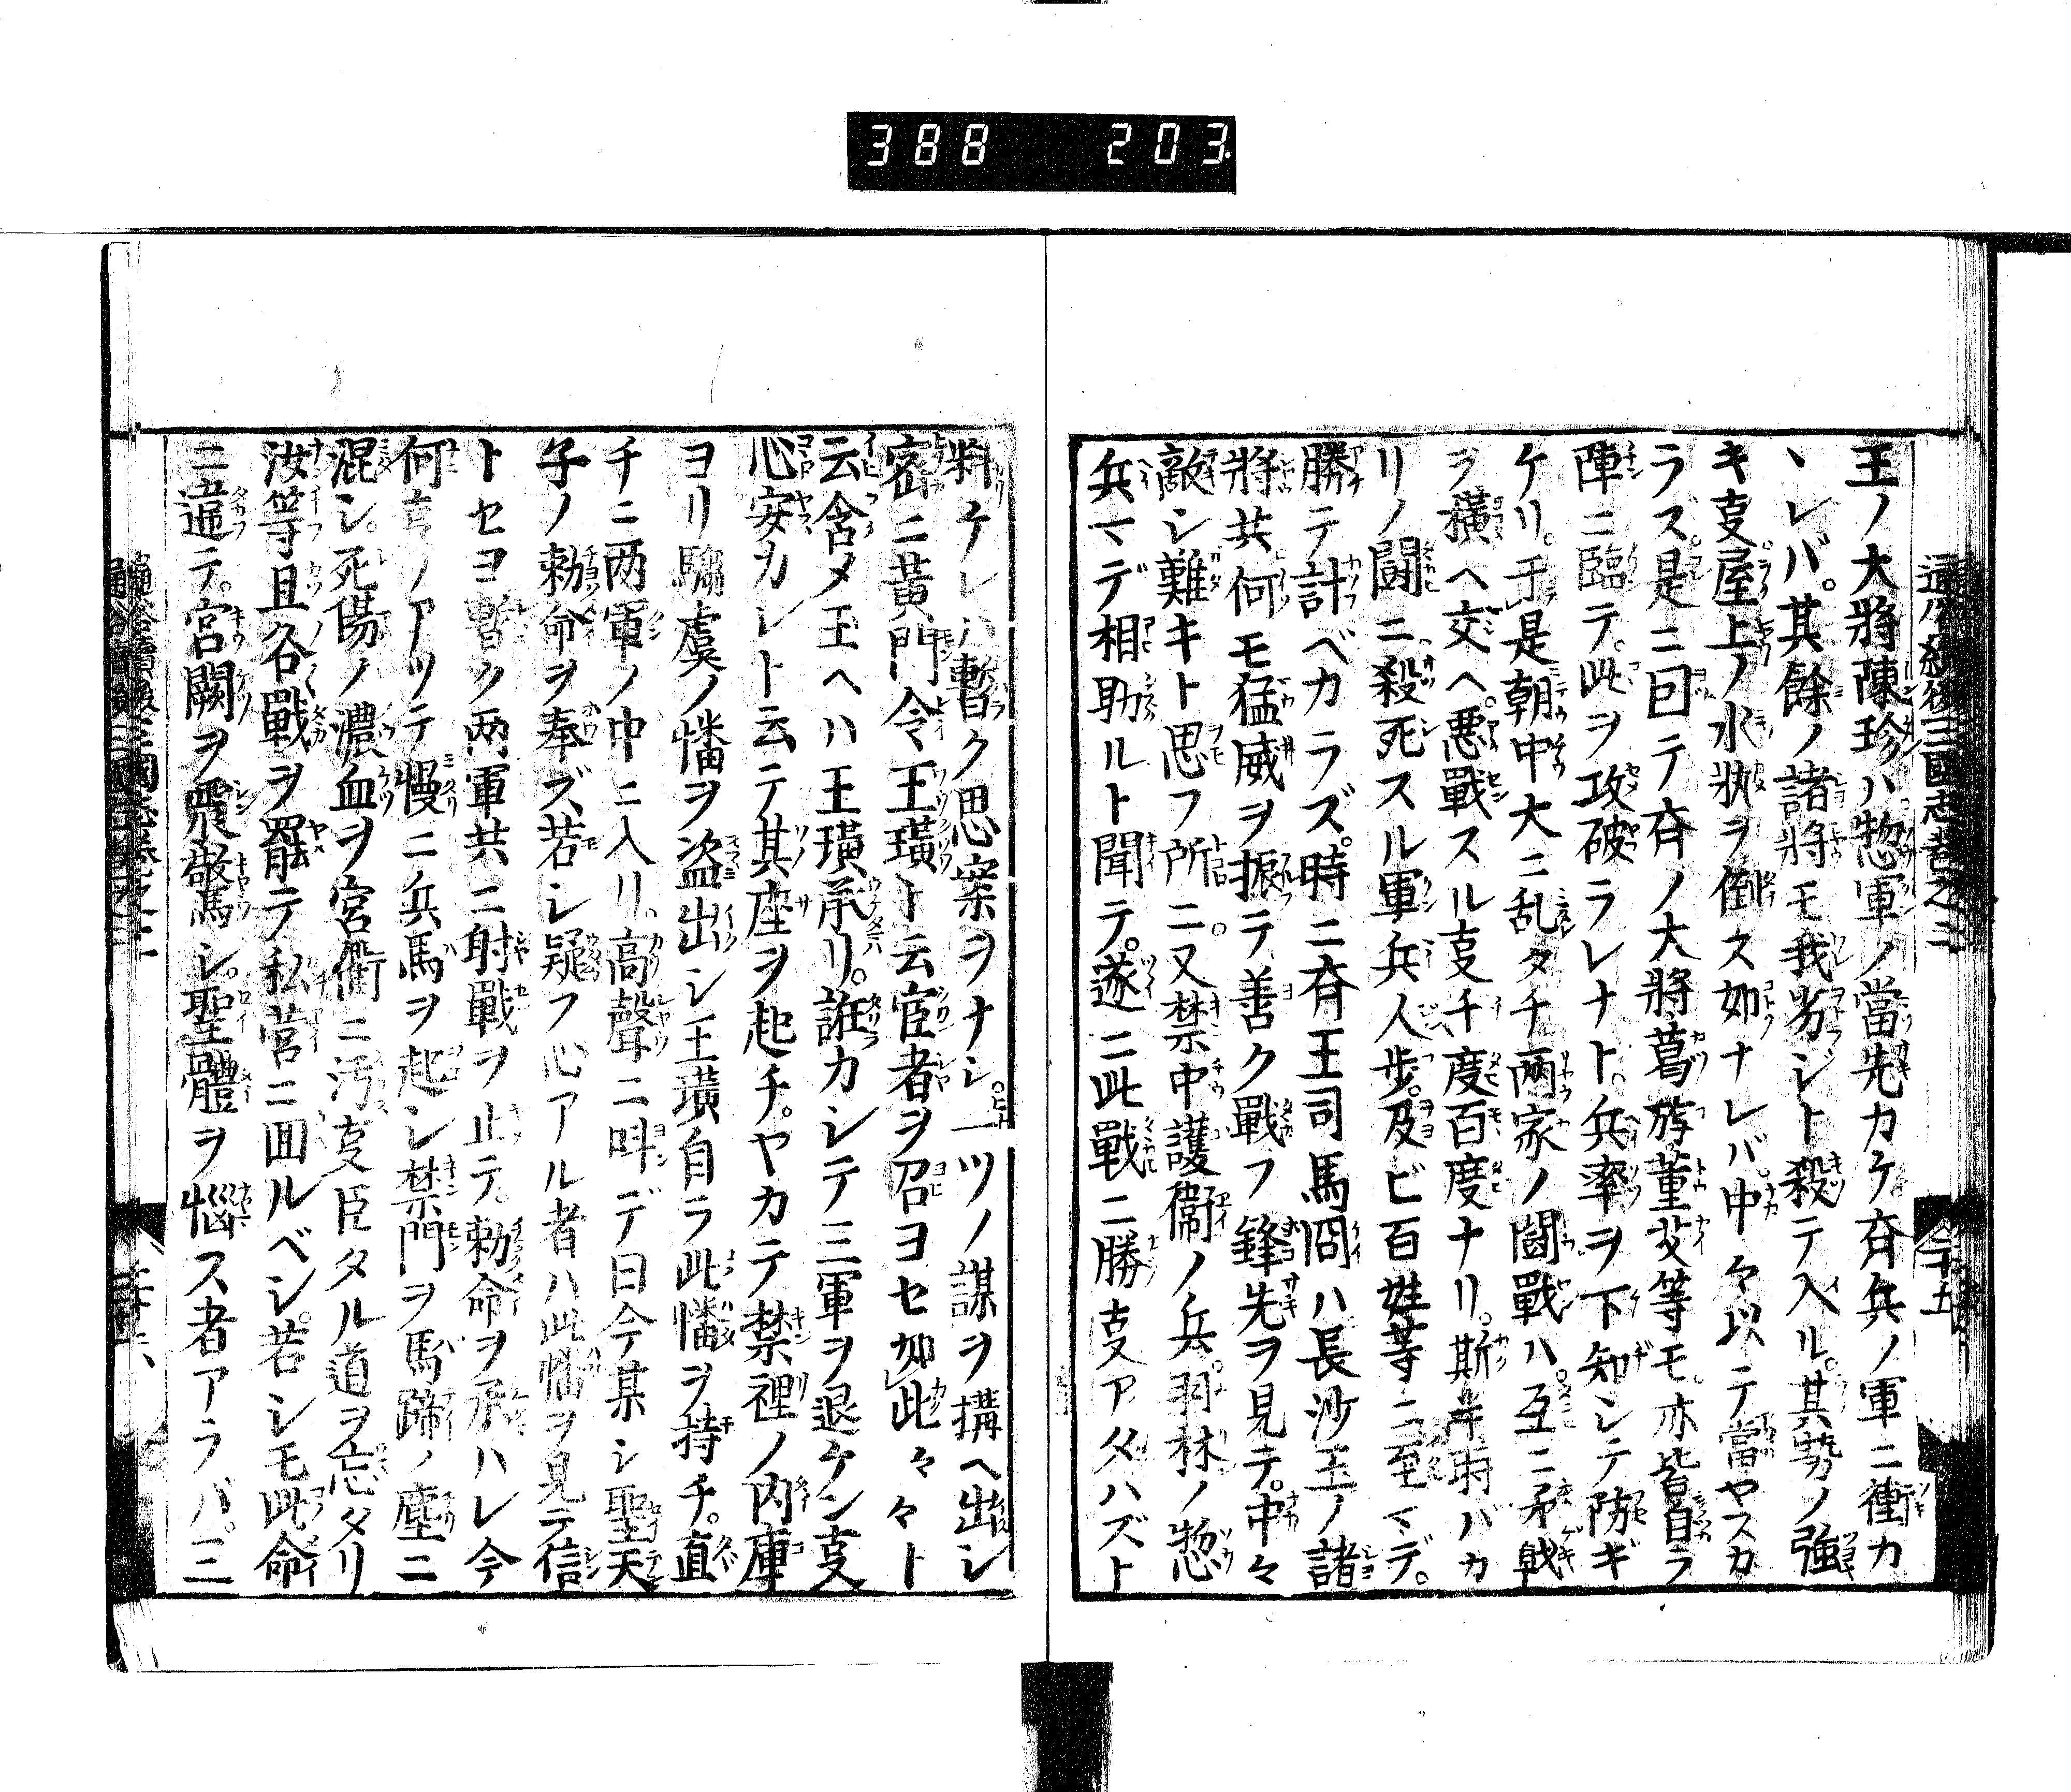 388 203
王ノ大將陳珍ハ惣軍ノ當先カケ斉兵ノ軍ニ衝カ
ヽレバ。其餘ノ諸將モ我劣ジト殺テ入ル。其勢ノ強
キ叓屋上ノ水狀ヲ倒ス如ナレバ。中々以テ當ヤスカ
ラズ。是ニ囙テ斉ノ大將葛旟董艾等モ亦皆自ラ
陣ニ臨テ。此ヲ攻破ラレナト。兵率ヲ下知シテ防ギ
ケリ。于是朝中大ニ乱タチ兩家ノ鬪戰ハ。互ニ矛戟
ヲ橫ヘ交ヘ。悪戰スル叓千度百度ナリ。斯半時バカ
リノ鬪ニ殺死スル軍兵人歩。及ビ百姓等ニ至マデ。
勝テ計ベカラズ。時ニ斉王司馬冏ハ長沙王ノ諸
將共何モ猛威ヲ振テ善ク戰フ鋒先ヲ見テ。中々
敵シ難キト思フ所ニ。又禁中護衞ノ兵。羽林ノ惣
兵マデ相助ルト聞テ。遂ニ此戰ニ勝叓アタハズト
料ケレハ暫ク思案ヲナシ。一ツノ謀ヲ搆ヘ出シ
密ニ黃門令王璜ト云宦者ヲ召ヨセ如此々々ト
云含メ王ヘハ王璜承リ。誰カシテ三軍ヲ退ケン叓
心安カレト云テ其座ヲ起チ。ヤカテ禁裡ノ內庫
ヨリ騶虞ノ幡ヲ盜出シ王璜自ラ此幡ヲ持チ。直
チニ两軍ノ中ニ入リ。高聲ニ呌デ曰今某シ聖天
子ノ勅命ヲ奉ズ若シ疑フ心アル者ハ此幡ヲ見テ信
トセヨ暫ク两軍共ニ射戰ヲ止テ。勅命ヲ承ハレ今
何叓ノアツテ慢ニ兵馬ヲ起シ禁門ヲ馬蹄ノ塵ニ
混シ。死傷ノ濃血ヲ宮衢ニ汚叓臣タル道ヲ忘タリ
汝等且各戰ヲ罷テ私營ニ囬ルベシ。若シモ此命
ニ違テ。宮闕ヲ震驚シ。聖體ヲ惱ス者アラバ。三